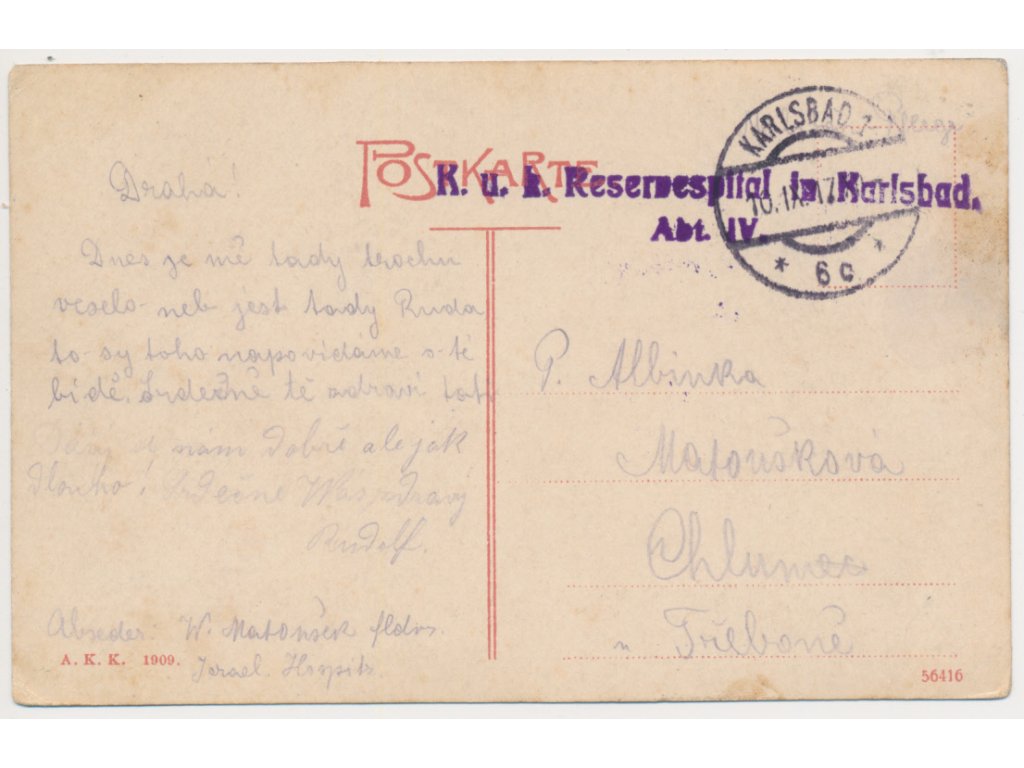 POSTKARTE
KARLSBAD 1
10.IX.17
* 6c *
K. u. k. Reservespital in Karlsbad.
Abt. IV.
Drahá!
Dnes je mě tady trochu
veselo neb jest tady Ruda
to-sy toho napovídáme o té
bídě. Srdečně tě zdraví
nám dobře ale jak
dlouho! Srdečně Vás zdraví
Rudolf.
Absender W. Matoušek fldw.
Israel. Hospitz
A. K. K. 1909.
P. Albinka
Matoušková
Chlumec
u Třeboně
56416